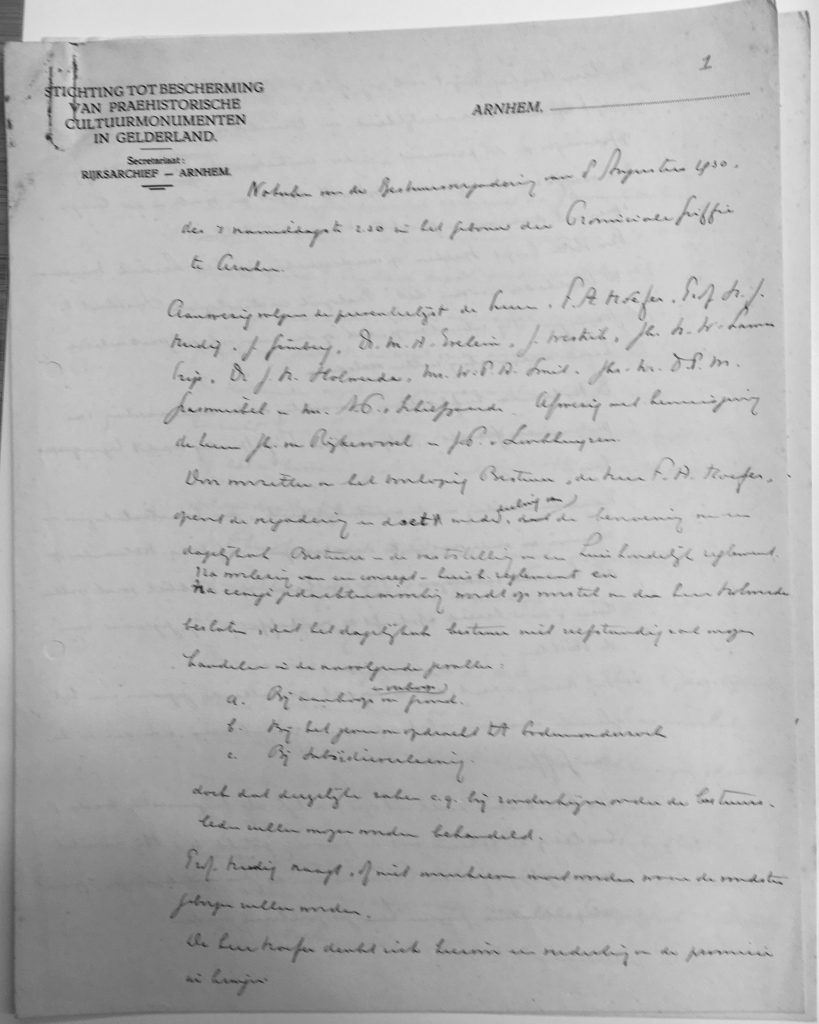 1
STICHTING TOT BESCHERMING
VAN PRAEHISTORISCHE
CULTUURMONUMENTEN
IN GELDERLAND.
Secretariaat:
RIJKSARCHIEF — ARNHEM.
ARNHEM,
Notulen van de Bestuursvergadering van 8 Augustus 1930.
des 's namiddags te 2.30 in het gebouw der Provinciale Griffie
te Arnhem.
Aanwezig volgens de presentielijst de heeren F. A. Hoefer, Prof. Dr. J.
J. Gimberg, Dr. M. A. Evelein, J. Westrik, Jhr. Mr. W.
Dr. J. H. Holwerda, Mr. W. P. A. Smit, Jhr. Mr. D. P. M.
Graswinckel en Mr. A. P. v. Schilfgaarde. Afwezig met kennisgeving
de heeren Jhr. van Rijckevorsel en
Door voorzitter van het voorloopig Bestuur, de heer F. A. Hoefer,
opent de vergadering en de benoeming van een
dagelijksch Bestuur en de vaststelling van een huishoudelijk reglement.
Na voorlezing van een concept-huish. reglement en
na eenige gedachtenwisseling wordt op voorstel van den heer Holwerda
besloten, dat het dagelijksch bestuur niet zelfstandig zal mogen
handelen in de navolgende gevallen:
a. Bij aankoop en verkoop van grond.
b. Bij het geven van opdracht tot bodemonderzoek
c. Bij subsidieverleening.
doch dat dergelijke zaken c.q. bij rondschrijven onder de bestuurs-
leden zullen mogen worden behandeld.
Prof. vraagt, of niet omschreven moet worden waar de vondsten
geborgen zullen worden.
De heer Hoefer denkt zich hierin een verdeeling van de provincie
in